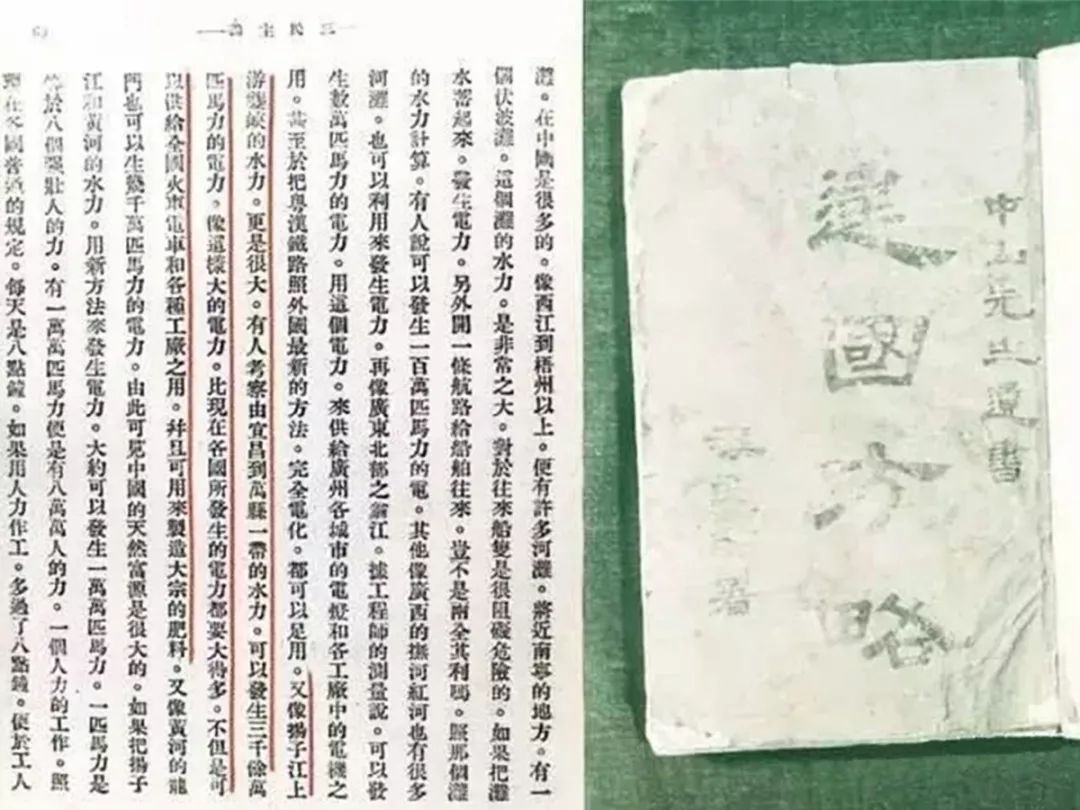 三民主義
灘。在中國是很多的。像西江到梧州以上。便有許多河灘。將近南寧的地方。有一
個伏波灘。這個灘的水力。是非常之大。對於往來船隻是很阻礙危險的。如果把灘
水蓄起來。發生電力。另外開一條航路給船舶往來。豈不是兩全其利嗎。照那個灘
的水力計算。有人說可以發生一百萬匹馬力的電。其他像廣西的撫河紅河也有很多
河灘。也可以利用來發生電力。再像廣東北部之翁江。據工程師的測量說。可以發
生數萬匹馬力的電力。用這個電力。來供給廣州各城市的電燈和各工廠中的電機之
用。甚至於把粵漢鐵路照外國最新的方法。完全電化。都可以足用。又像揚子江上
游夔峽的水力。更是很大。有人考察由宜昌到萬縣一帶的水力。可以發生三千餘萬
匹馬力的電力。像這樣大的電力。比現在各國所發生的電力都要大得多。不但是可
以供給全國火車電車和各種工廠之用。幷且可用來製造大宗的肥料。又像黃河的龍
門也可以生幾千萬匹馬力的電力。由此可見中國的天然富源是很大的。如果把揚子
江和黃河的水力。用新方法來發生電力。大約可以發生一萬萬匹馬力。一匹馬力是
等於八個强壯人的力。有一萬萬匹馬力便是有八萬萬人的力。一個人力的工作。照
現在各國普通的規定。每天是八點鐘。如果用人力作工。多過了八點鐘。便於工人
中山先生遺書
建國方略
署